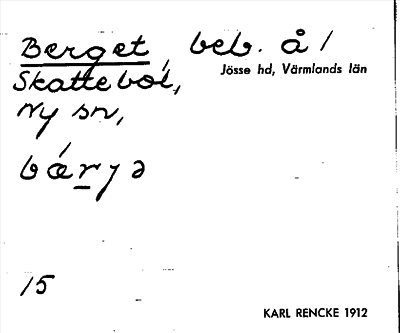 Berget, beb. å /
Jösse hd, Värmlands län
Skattebol,
Ny sn,
bǽrjə
15
KARL RENCKE 1912